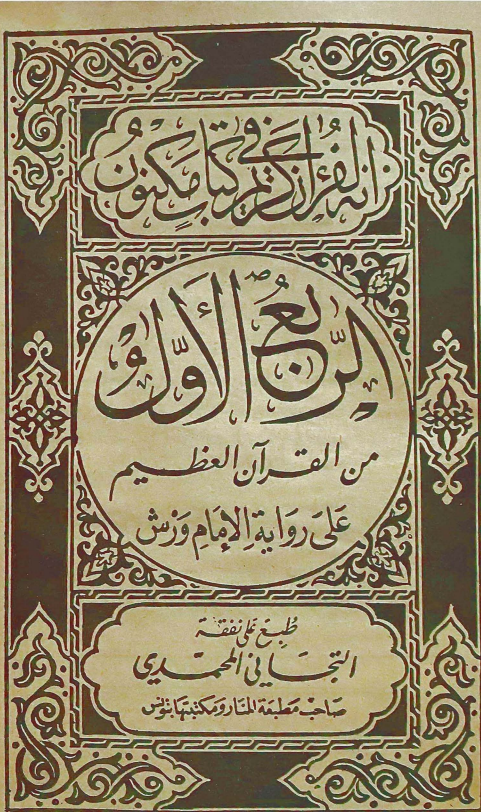 إنه لقرءان كريم في كتاب مكنون
الربع الأول
من القرآن العظيم
على رواية الإمام ورش
طبع على نفقة
التجاني المحمدي
صاحب مطبعة المنار ومكتبتها بتونس